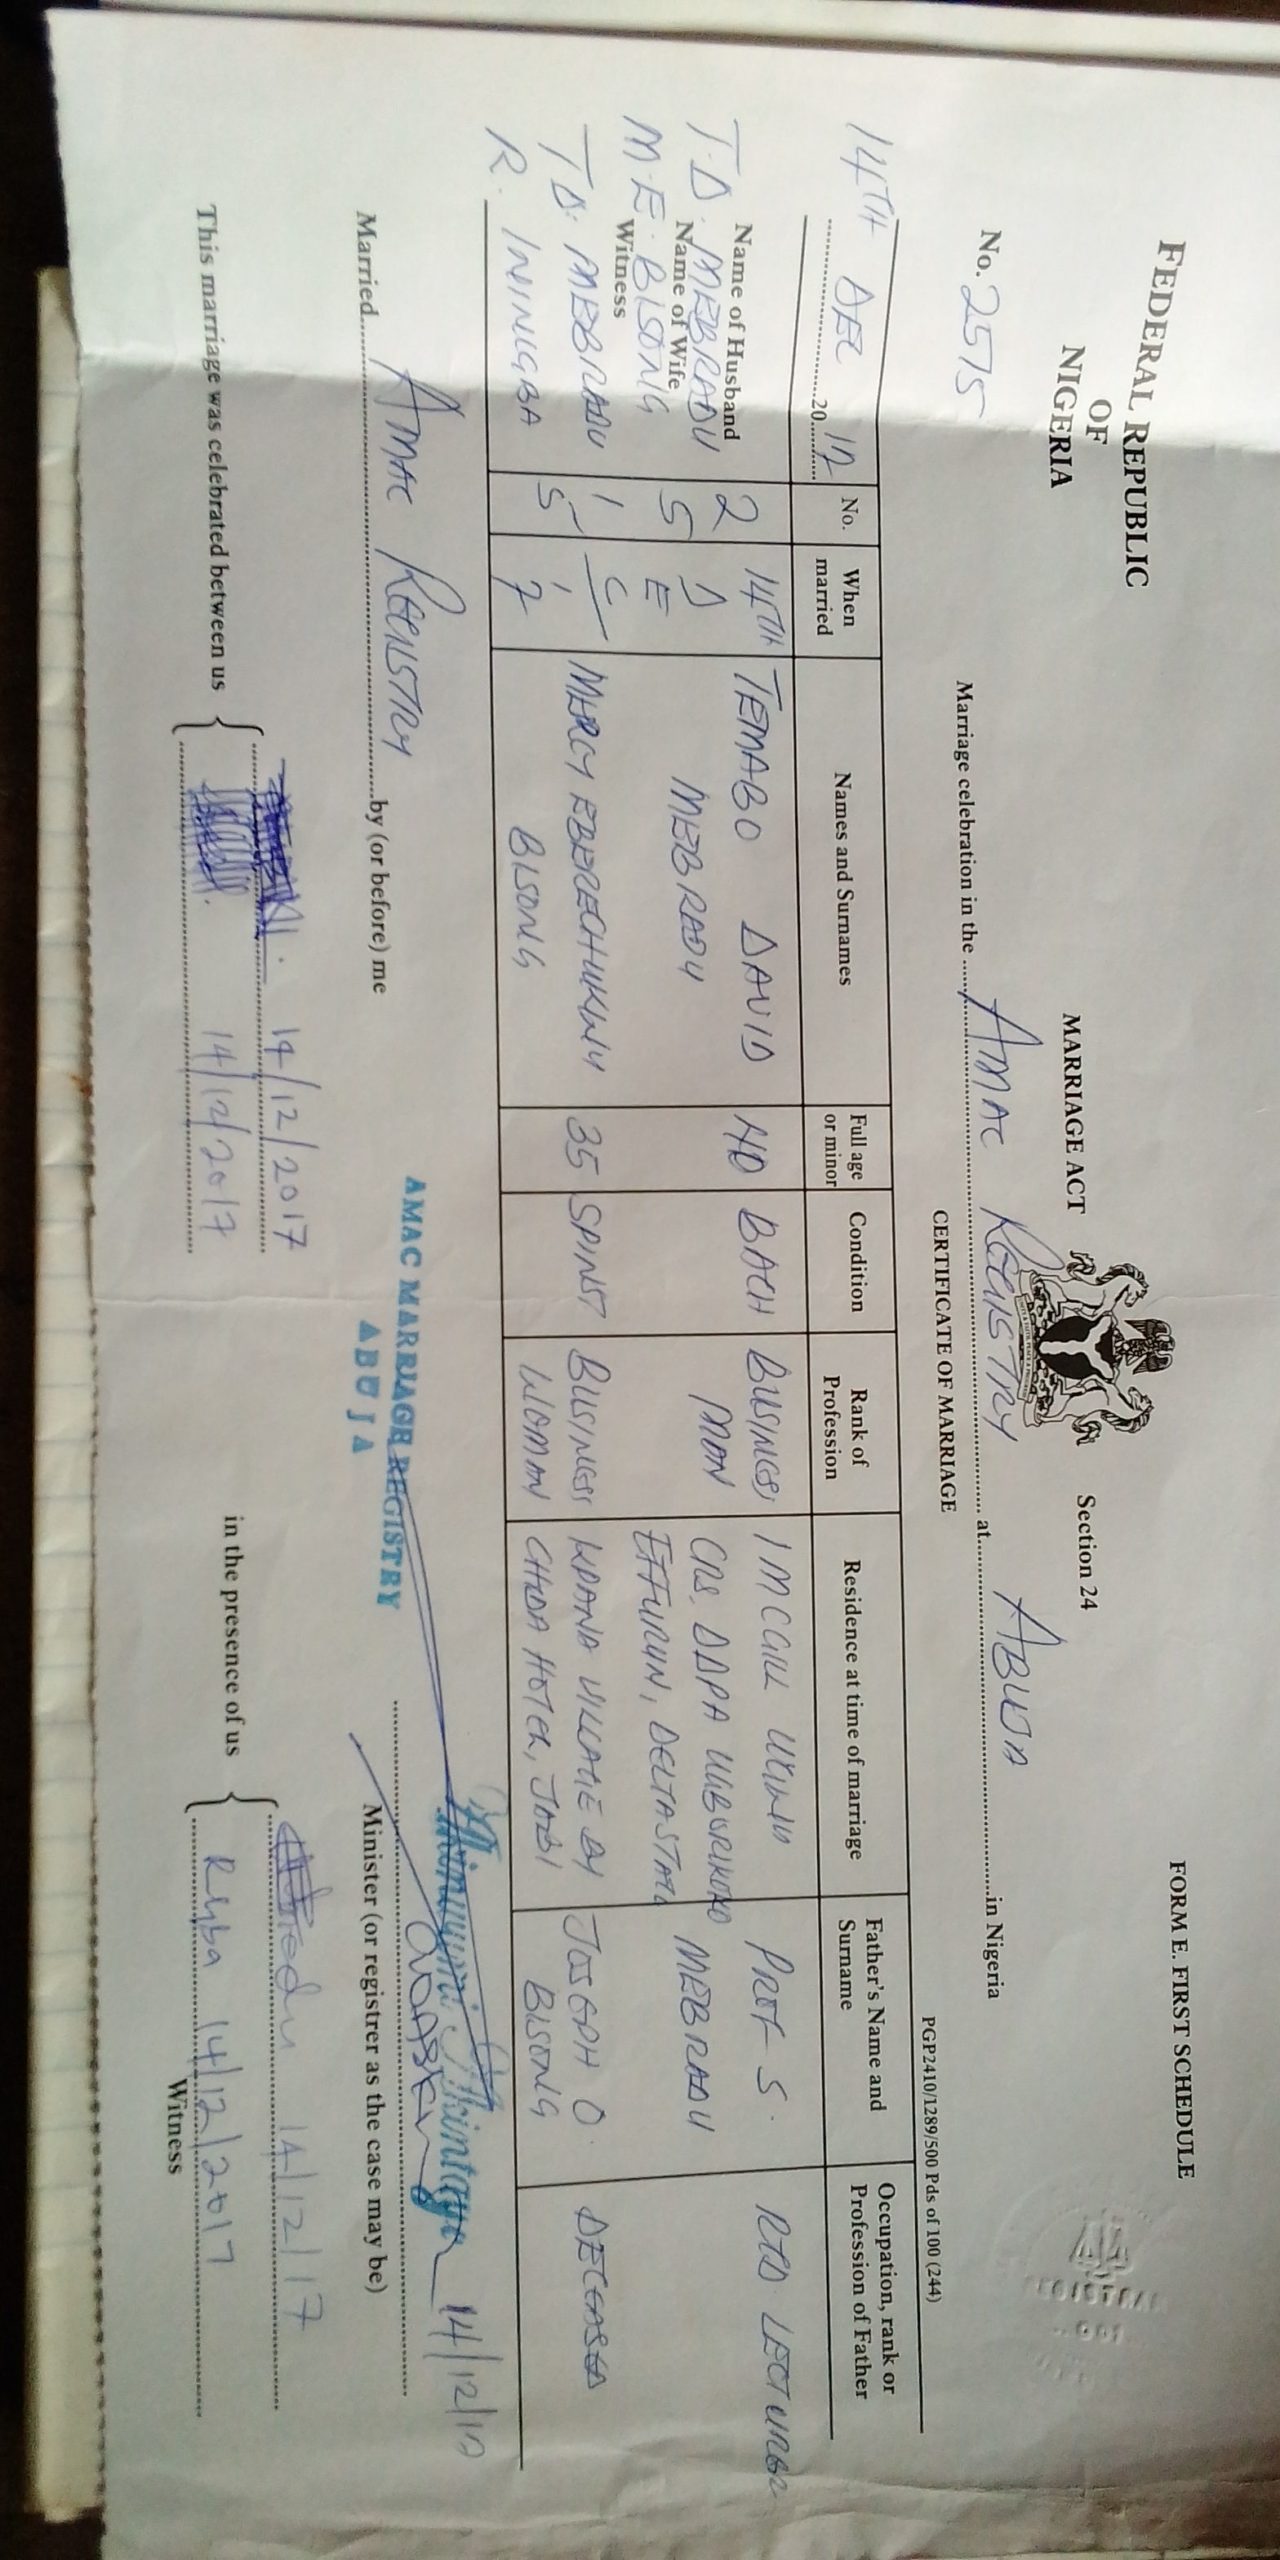 FORM E. FIRST SCHEDULE
FEDERAL REPUBLIC
OF
NIGERIA
MARRIAGE ACT
Section 24
No. 2575
Marriage celebration in the AMAC REGISTRY at ABUJA in Nigeria
CERTIFICATE OF MARRIAGE
PGP2410/1289/500 Pds of 100 (244)
14TH DEC 2017
No.
When married
Names and Surnames
Full age or minor
Condition
Rank of Profession
Residence at time of marriage
Father's Name and Surname
Occupation, rank or Profession of Father
Name of Husband
T.D. MEBRADU
Name of Wife
M.E. BISONG
Witness
T.D. MEBRADU
R. ININGBA
2 5 1 5
14TH D E C 17
TEMABO DAVID
MEBRADU
40
BACH
BUSINESS
MAN
1 MCGILL UKUWU
CRS. DDPA UGBORIKOKO
EFFURUN, DELTA STATE
PROF S.
MEBRADU
RTD LECTURER
MERCY EBERECHUKWU
BISONG
35
SPINST
BUSINESS
WOMAN
KPANA VILLAGE BY
CHIDA HOTEL, JABI
JOSEPH O.
BISONG
DECEASED
Married AMAC REGISTRY by (or before) me
AMAC MARRIAGE REGISTRY
ABUJA
14/12/17
Minister (or registrer as the case may be)
This marriage was celebrated between us
14/12/2017
14/12/2017
in the presence of us
14/12/17
14/12/2017
Witness